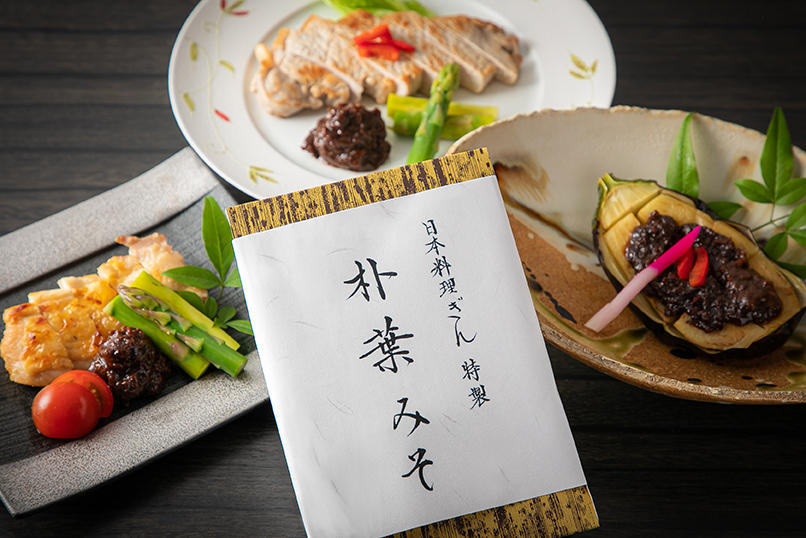 日本料理ぎん 特製
朴葉みそ